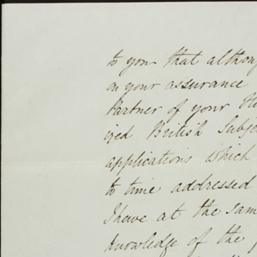 to you that althoug
on your assurance
Partner of your Ho
ized British Subje
applications which
to time addressed
I have at the sam
knowledge of the